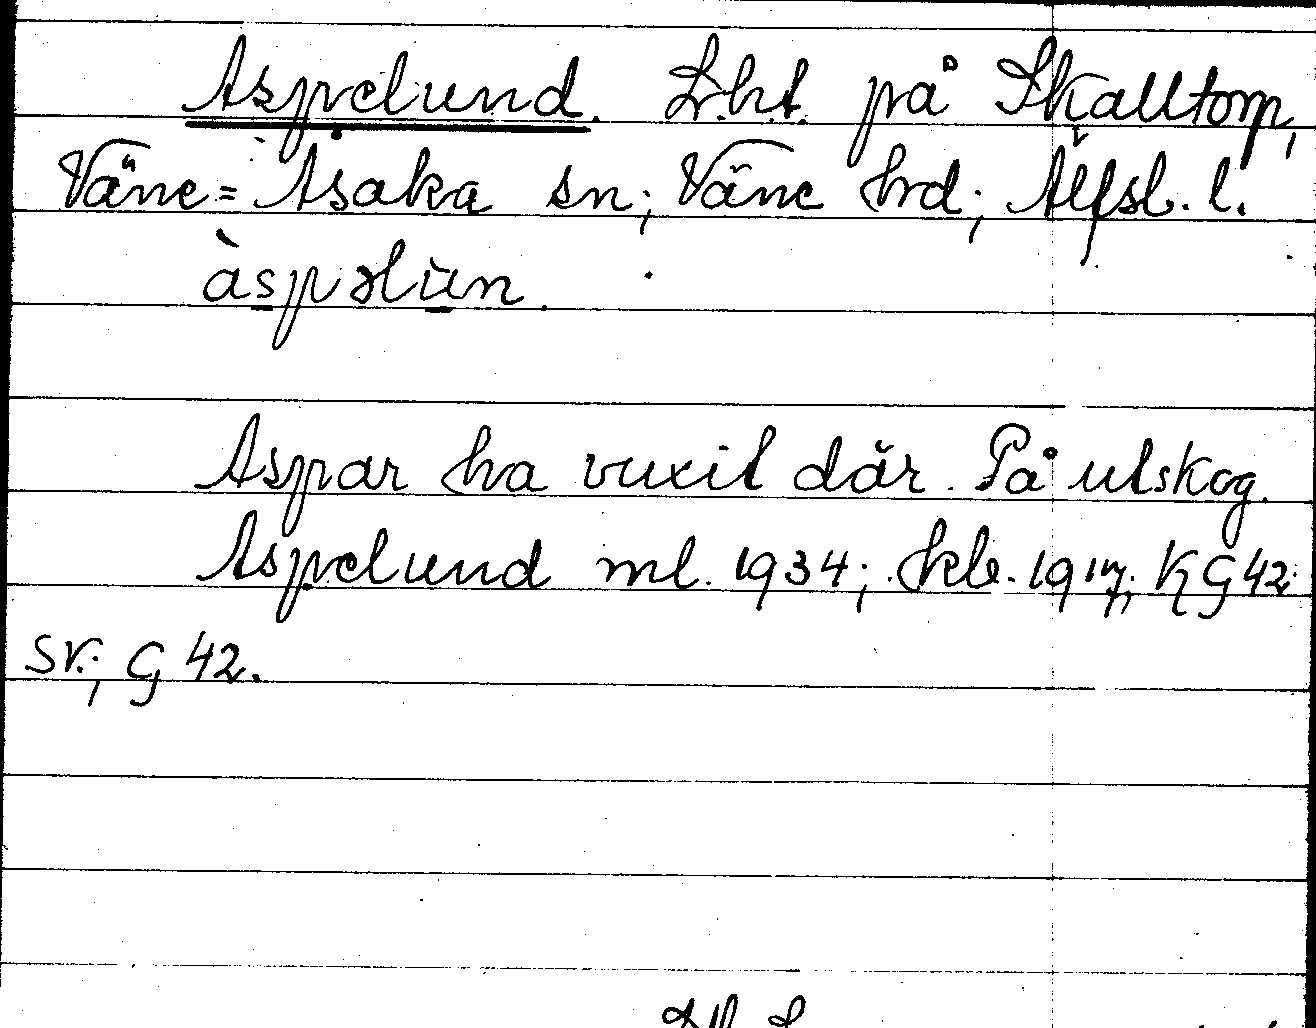 Aspelund. Lht. på Skalltorp,
Väne=Åsaka sn; Väne hrd; Älfsb. l.
àspəlùn.
Aspar ha vuxit där. På utskog.
Aspelund ml. 1934; kb. 1917; KG 42
sv.; G 42.